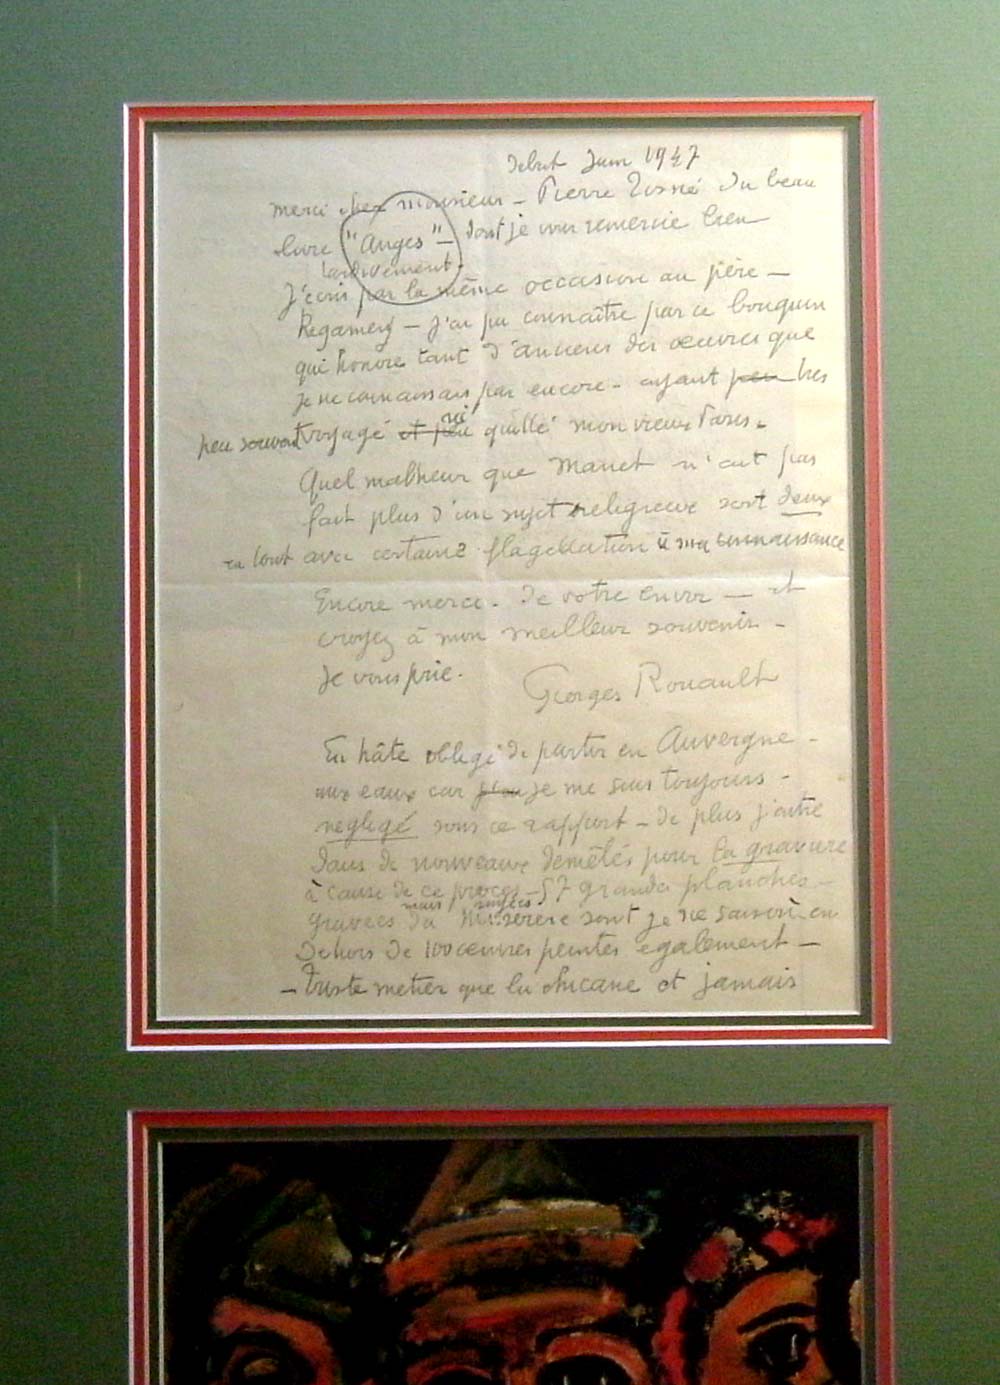 début Juin 1947
merci cher monsieur – Pierre Tisné du beau
livre "Anges" – dont je vous remercie bien
tardivement –
J'écris par la même occasion au père –
Regamey – j'ai pu connaître par ce bouquin
qui honore tant d'anciens des œuvres que
je ne connaissais pas encore – ayant peu très
peu souvent voyagé et peu ni quitté mon vieux Paris.
Quel malheur que Manet n'ait pas
fait plus d'un sujet religieux sont deux
en tout avec certaine flagellation à ma connaissance
Encore merci – de votre envoi — et
croyez à mon meilleur souvenir –
Je vous prie.
Georges Rouault
En hâte obligé de partir en Auvergne –
aux eaux car je me suis toujours –
negligé sous ce rapport – de plus j'entre
dans de nouveaux démêlés pour la gravure
à cause de ce procès – 57 grandes planches –
gravées du Miserere sont je ne sais où – en
dehors de 100 œuvres peintes également –
– Triste metier que la chicane et jamais